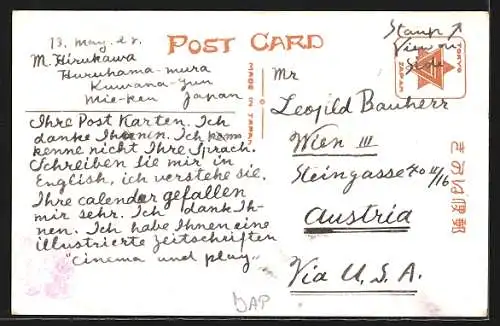 13. May. 28.
M. Hirukawa
Huruhama-mura
Kuwana-gun
Mie-ken Japan
POST CARD
Stamp ↗
View on
side
TOKYO
MADE IN JAPAN
Mr
Leopold Bauherr
Wien III
Steingasse 40 III/16
Austria
Via U.S.A.
Ihre Post Karten. Ich
danke Ihnen. Ich kann
kenne nicht Ihre Sprach.
Schreiben Sie mir in
English, ich verstehe sie.
Ihre calender gefallen
mir sehr. Ich dank Ih-
nen. Ich habe Ihnen eine
illustrierte zeitschriften
"cinema und play"
きかは便郵
JAP